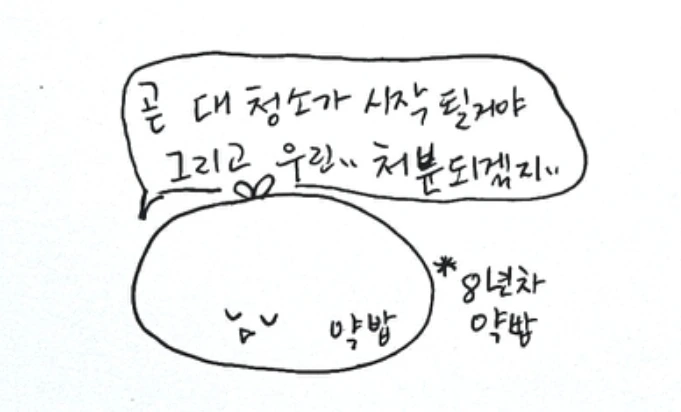 곧 대 청소가 시작 될거야
그리고 우린.. 처분되겠지..
약밥
*8년차
약밥